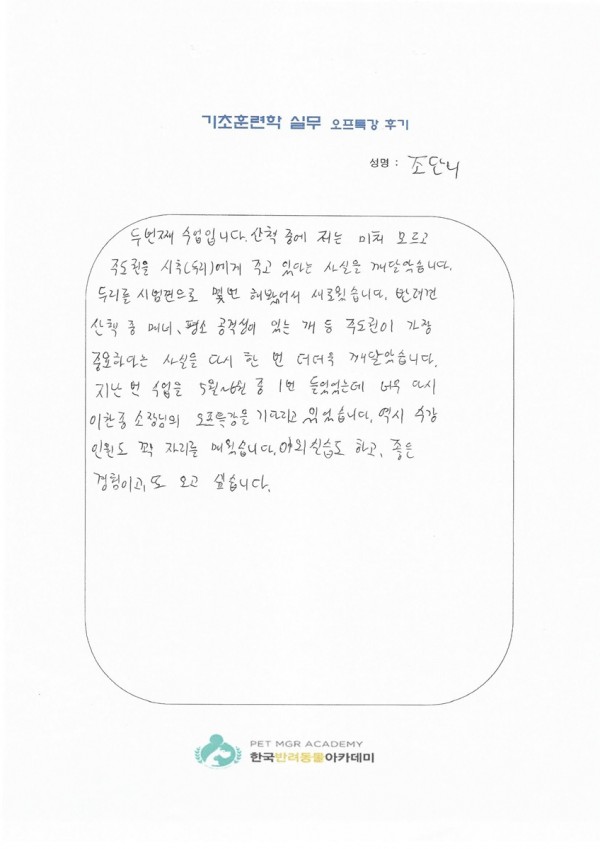 기초훈련학 실무 오프특강 후기
성명 : 조단비
두번째 수업입니다. 산책 중에 저는 미처 모르고
주도권을 시츄(두리)에게 주고 있다는 사실을 깨달았습니다.
두리를 시범견으로 몇번 해봤어서 새로웠습니다. 반려견
산책 중 매너, 평소 공격성이 있는 개 등 주도권이 가장
중요하다는 사실을 다시 한 번 더더욱 깨달았습니다.
지난 번 수업을 5월~6월 중 1번 들었었는데 너무 다시
이찬종 소장님의 오프특강을 기다리고 있었습니다. 역시 수강
인원도 꽉 자리를 메웠습니다. 야외실습도 하고, 좋은
경험이고, 또 오고 싶습니다.
PET MGR ACADEMY
한국반려동물아카데미